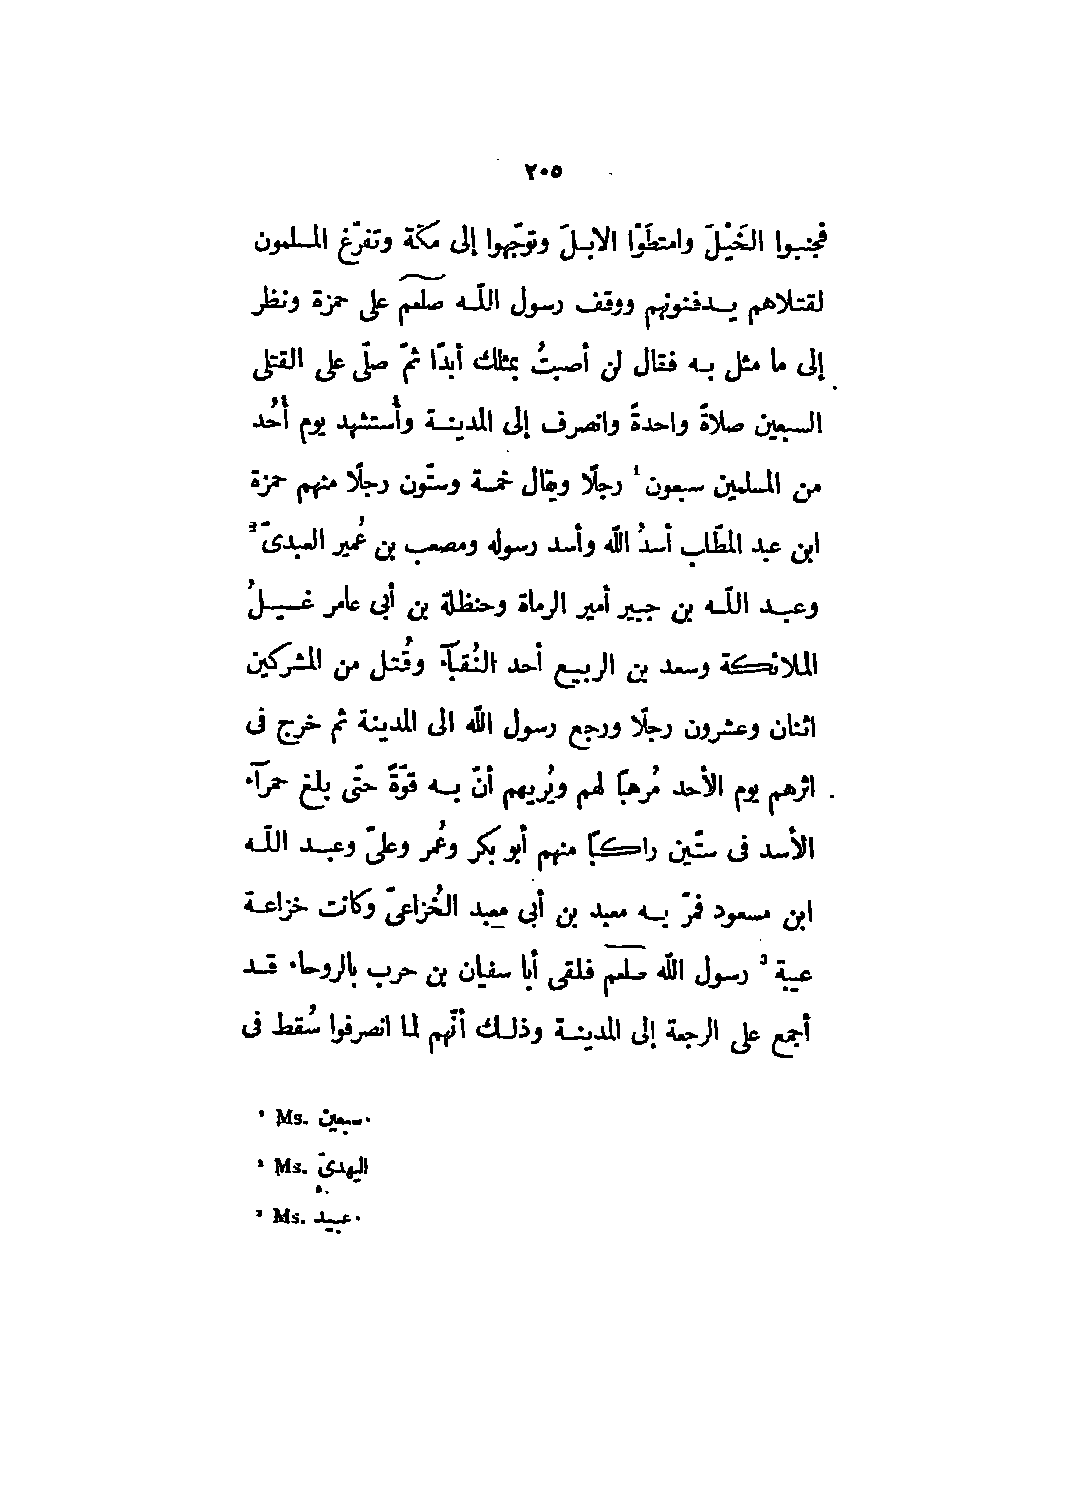 ٢٠٥
فجنبوا الخَيْلَ وامتطَوْا الابلَ وتوَجّهوا إلى مكّة وتفرّغ المسلمون
لقتلاهم يدفنونهم ووقف رسول اللّه صلعم على حمزة ونظر
إلى ما مثل به فقال لن أصبتُ بمثلك أبدًا ثمّ صلّى على القتلى
السبعين صلاةً واحدةً وانصرف إلى المدينة وأُستشهد يوم أُحُد
من المسلمين سبعون¹ رجلًا ويقال خمسة وستّون رجلًا منهم حمزة
ابن عبد المطّلب أسدُ اللّه وأسد رسوله ومصعب بن عُمير العبدىّ²
وعبد اللّه بن جبير أمير الرماة وحنظلة بن أبى عامر غسيلُ
الملائكة وسعد بن الربيع أحد النُقبآء وقُتل من المشركين
اثنان وعشرون رجلًا ورجع رسول اللّه الى المدينة ثم خرج فى
اثرهم يوم الأحد مُرهبًا لهم ويُريهم أنّ به قوّةً حتّى بلغ حمرآء
الأسد فى ستّين راكبًا منهم أبو بكر وعُمر وعلىّ وعبد اللّه
ابن مسعود فمرّ به معبد بن أبى معبد الخُزاعىّ وكانت خزاعة
عيبة³ رسول اللّه صلعم فلقى أبا سفيان بن حرب بالروحاء قد
أجمع على الرجعة إلى المدينة وذلك أنّهم لما انصرفوا سُقط فى
¹ Ms. سبعين.
² Ms. اليهدىّ
³ Ms. عبيد.